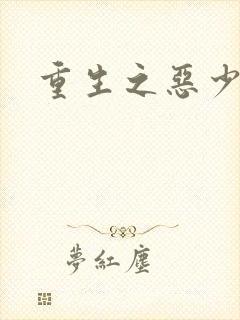 重生之惡少
夢紅塵